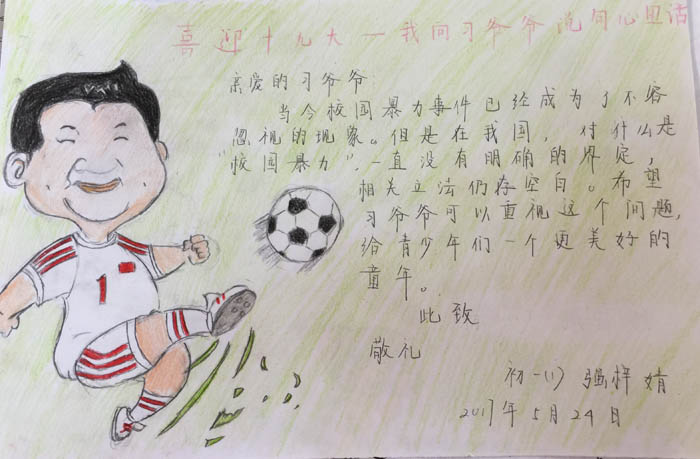 喜迎十九大—我向习爷爷说句心里话
亲爱的习爷爷:
当今校园暴力事件已经成为了不容
忽视的现象。但是在我国，对什么是
“校园暴力”，一直没有明确的界定，
相关立法仍存空白。希望
习爷爷可以重视这个问题，
给青少年们一个更美好的
童年。
此致
敬礼
初一(1) 强梓婧
2017年5月24日
1